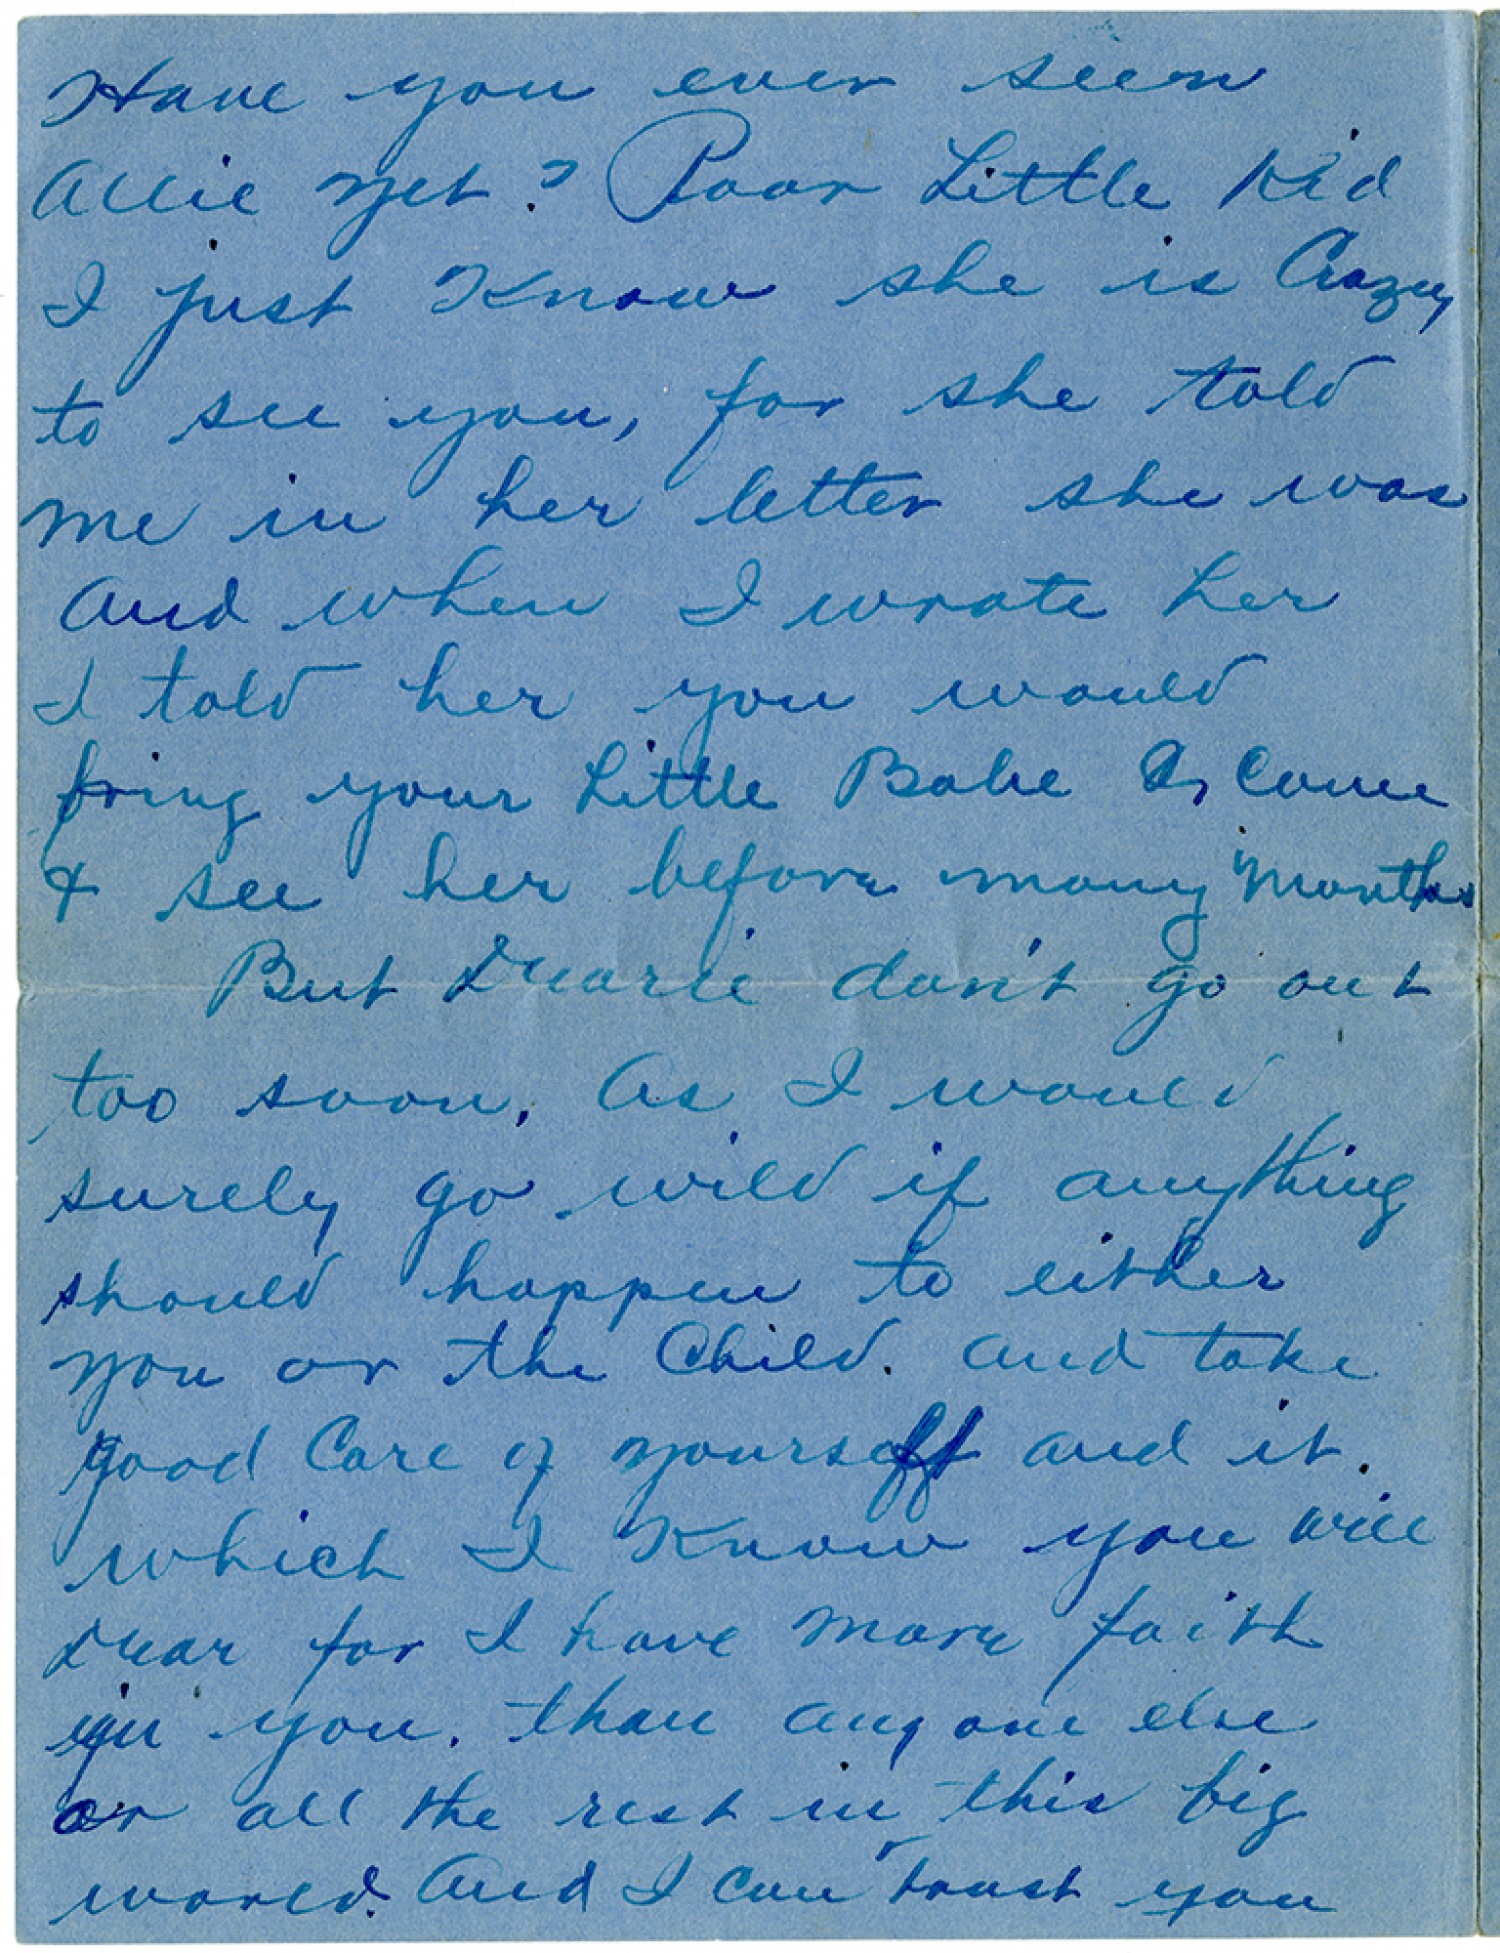 Have you ever seen
Allie yet? Poor Little Kid
I just Know she is Crazy
to see you, for she told
me in her letter she was
And when I wrote her
I told her you would
bring your Little Babe & Come
& see her before many Months
But Dearie don't go out
too soon, As I would
surely go wild if anything
should happen to either
you or the Child. And take
good Care of yourself and it.
which I Know you will
Dear for I have more faith
in you. than any one else
or all the rest in this big
world. And I can trust you